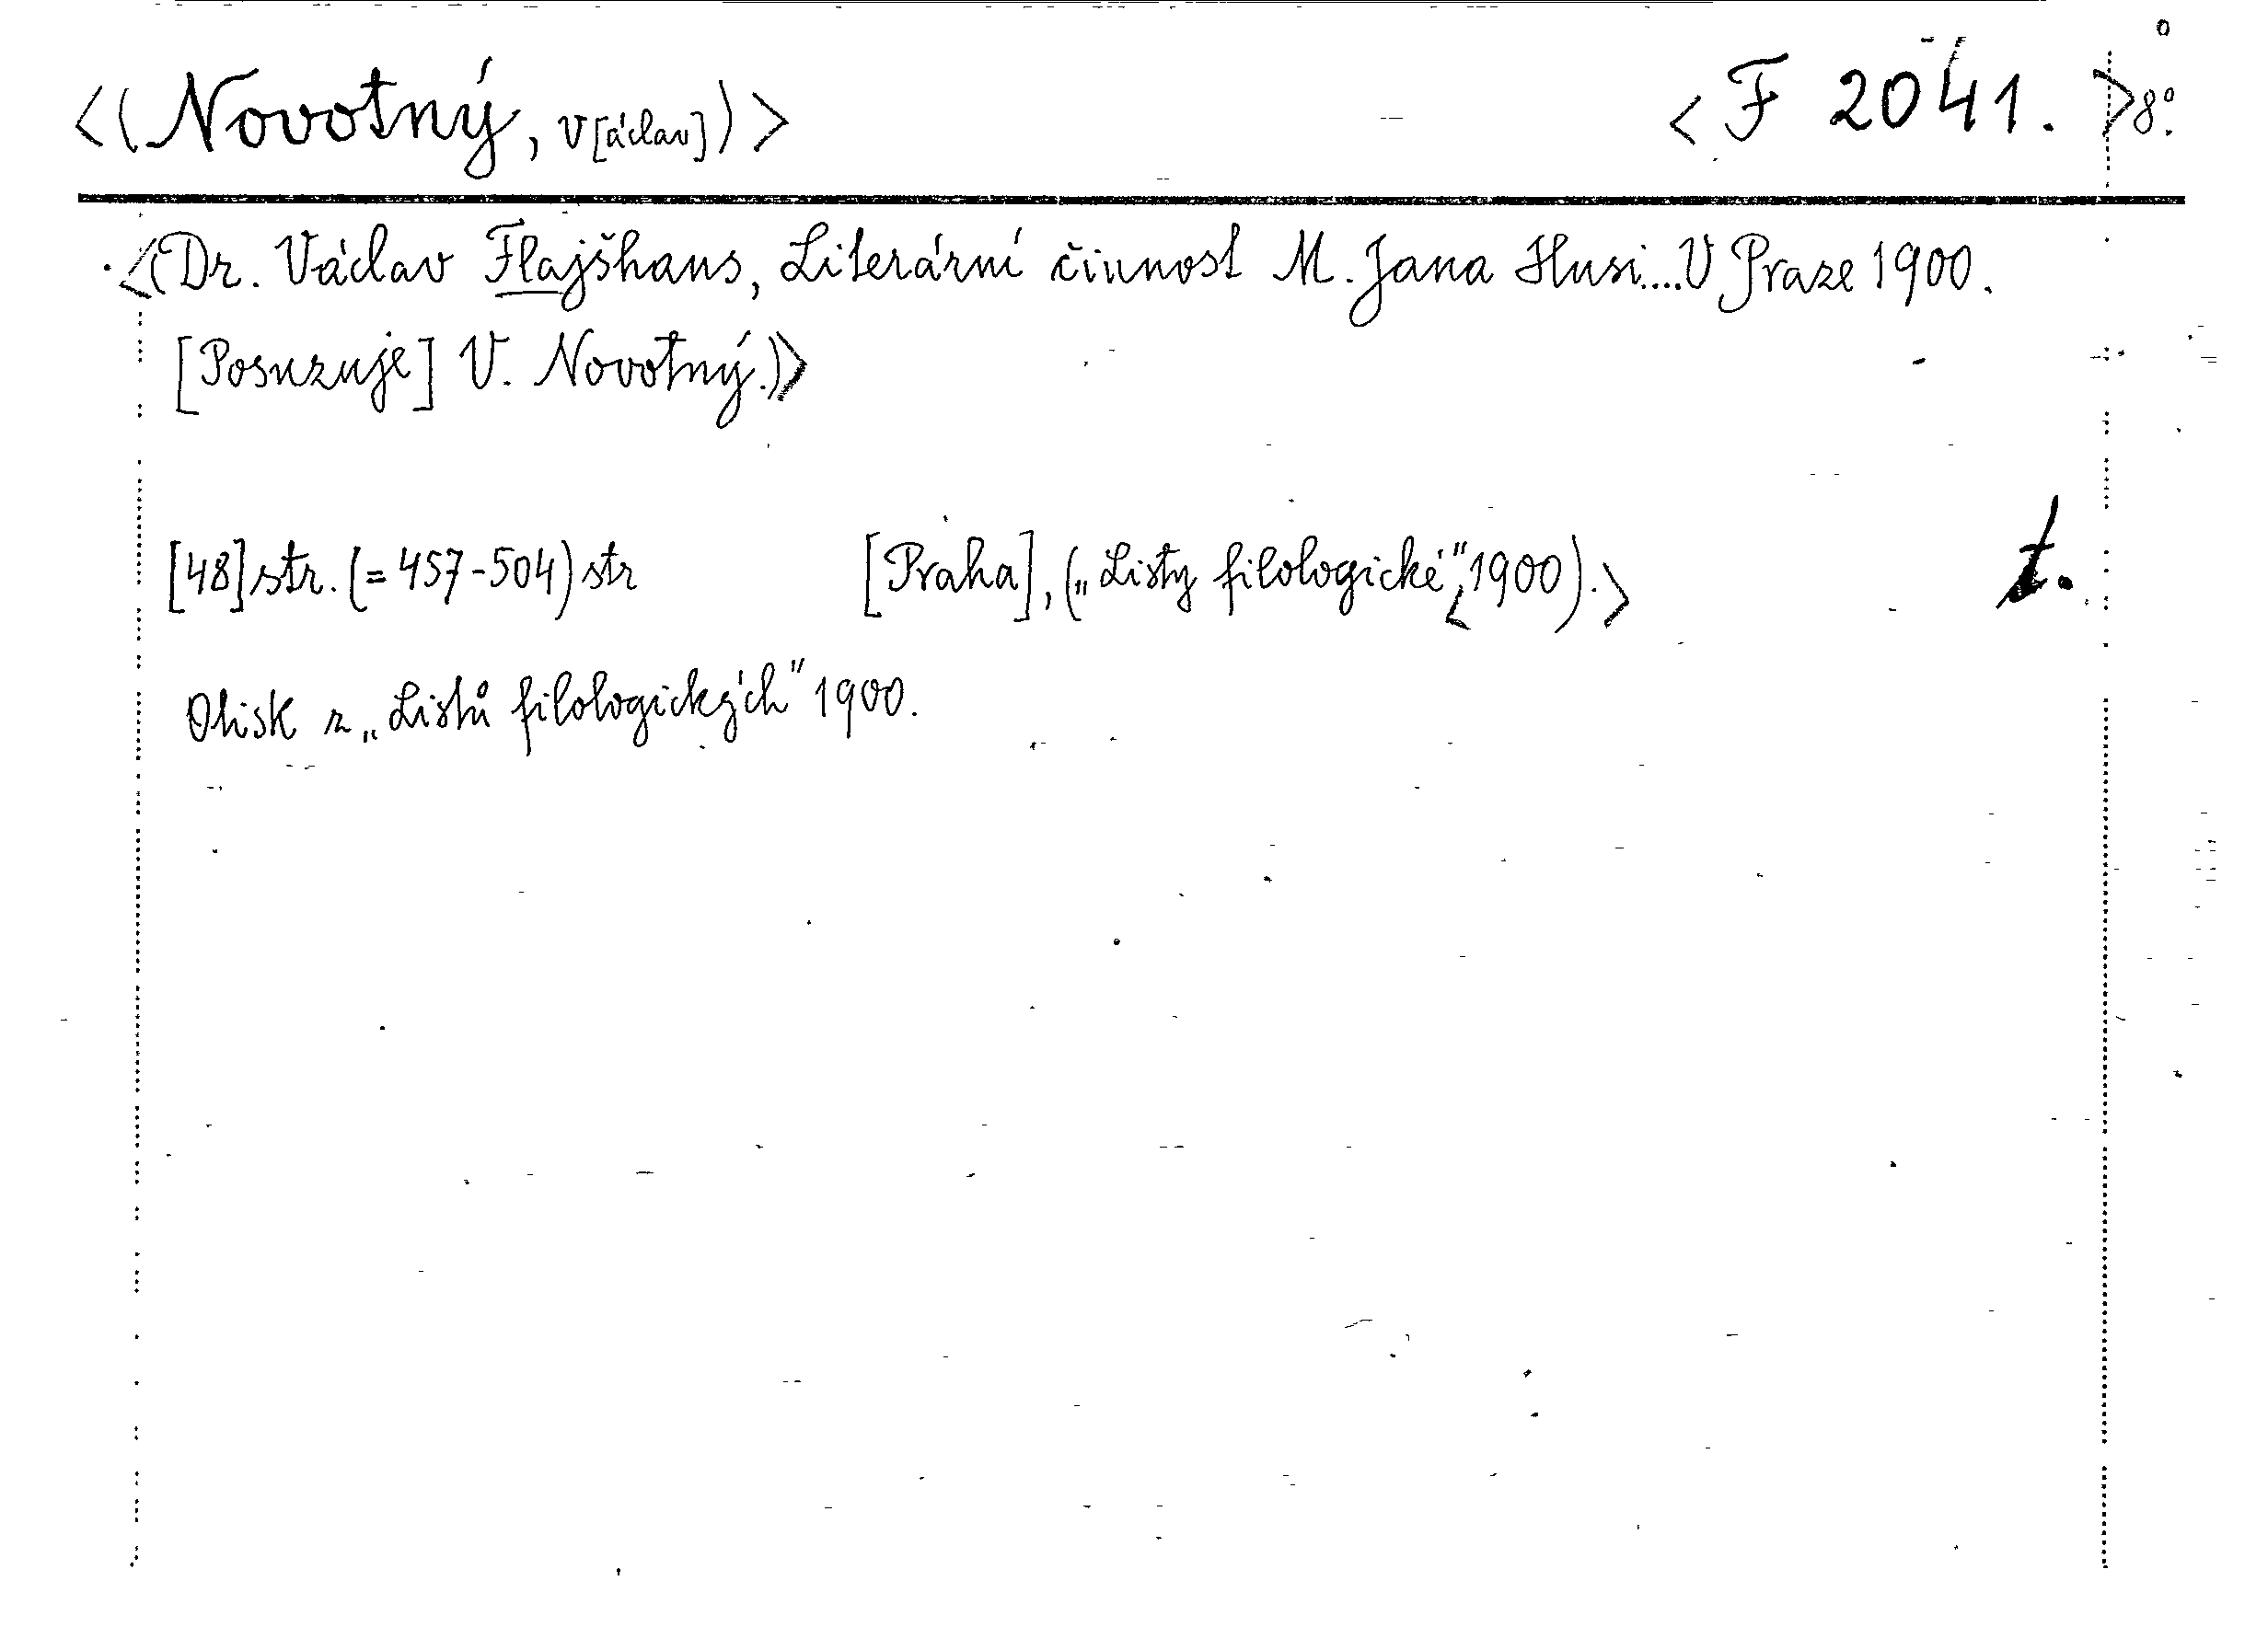 <(Novotný, V[áclav])> <F 2041. >8°.
<(Dr. Václav Flajšhans, Literární činnost M. Jana Husi....V Praze 1900.
[Posuzuje] V. Novotný.)>
[48] str. (= 457-504) str [Praha], („Listy filologické“, <1900).> t.
Otisk z „Listů filologických“ 1900.